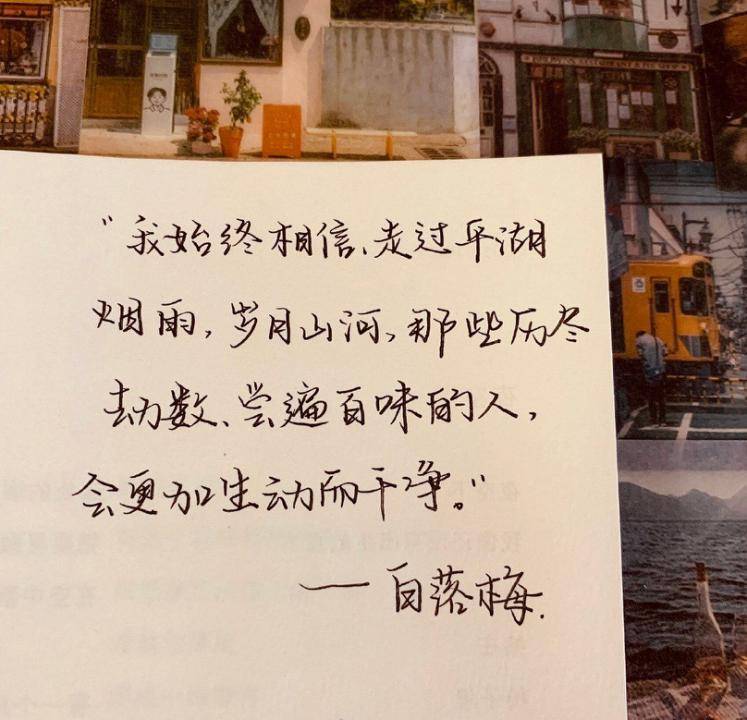 “我始终相信、走过平湖
烟雨，岁月山河，那些历尽
劫数、尝遍百味的人，
会更加生动而干净。”
—— 白落梅.